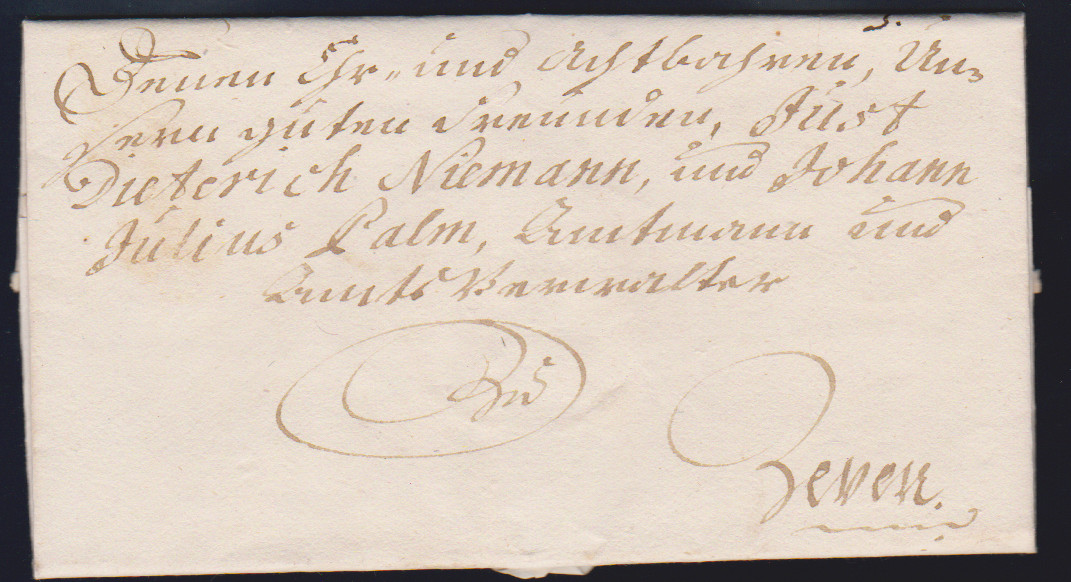 Denen Ehr- und Achtbahren, Un-
sern guten Freunden, Just
Dieterich Niemann, und Johann
Julius Palm, Amtmann und
Amts Verwalter
Zu
Zeven.